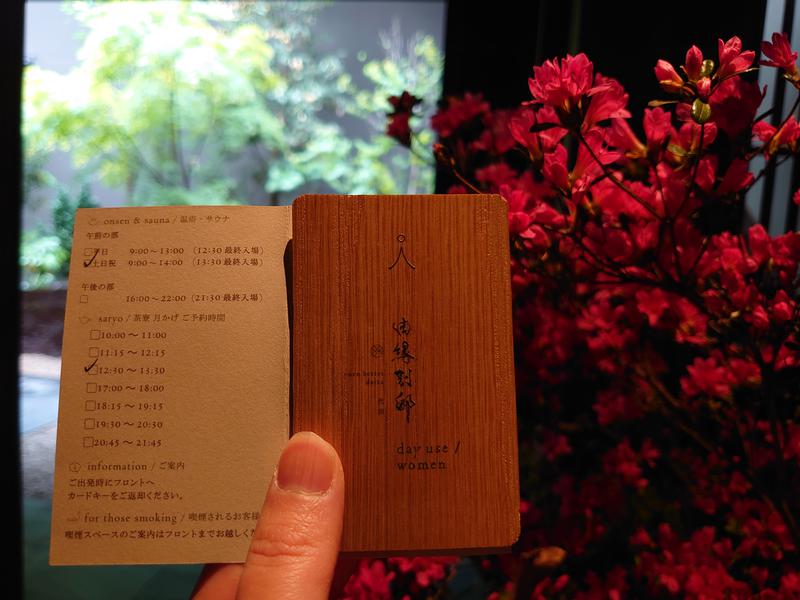 onsen & sauna / 温浴・サウナ
午前の部
平日 9:00～13:00 (12:30 最終入場)
土日祝 9:00～14:00 (13:30 最終入場)
午後の部
16:00～22:00 (21:30 最終入場)
saryo / 茶寮 月かげ ご予約時間
10:00 ～ 11:00
11:15 ～ 12:15
12:30 ～ 13:30
17:00 ～ 18:00
18:15 ～ 19:15
19:30 ～ 20:30
20:45 ～ 21:45
information / ご案内
ご出発時にフロントへ
カードキーをご返却ください。
for those smoking / 喫煙されるお客様
喫煙スペースのご案内はフロントまでお越しくだ
由縁別邸
yuen bettei
daita
代田
day use /
women